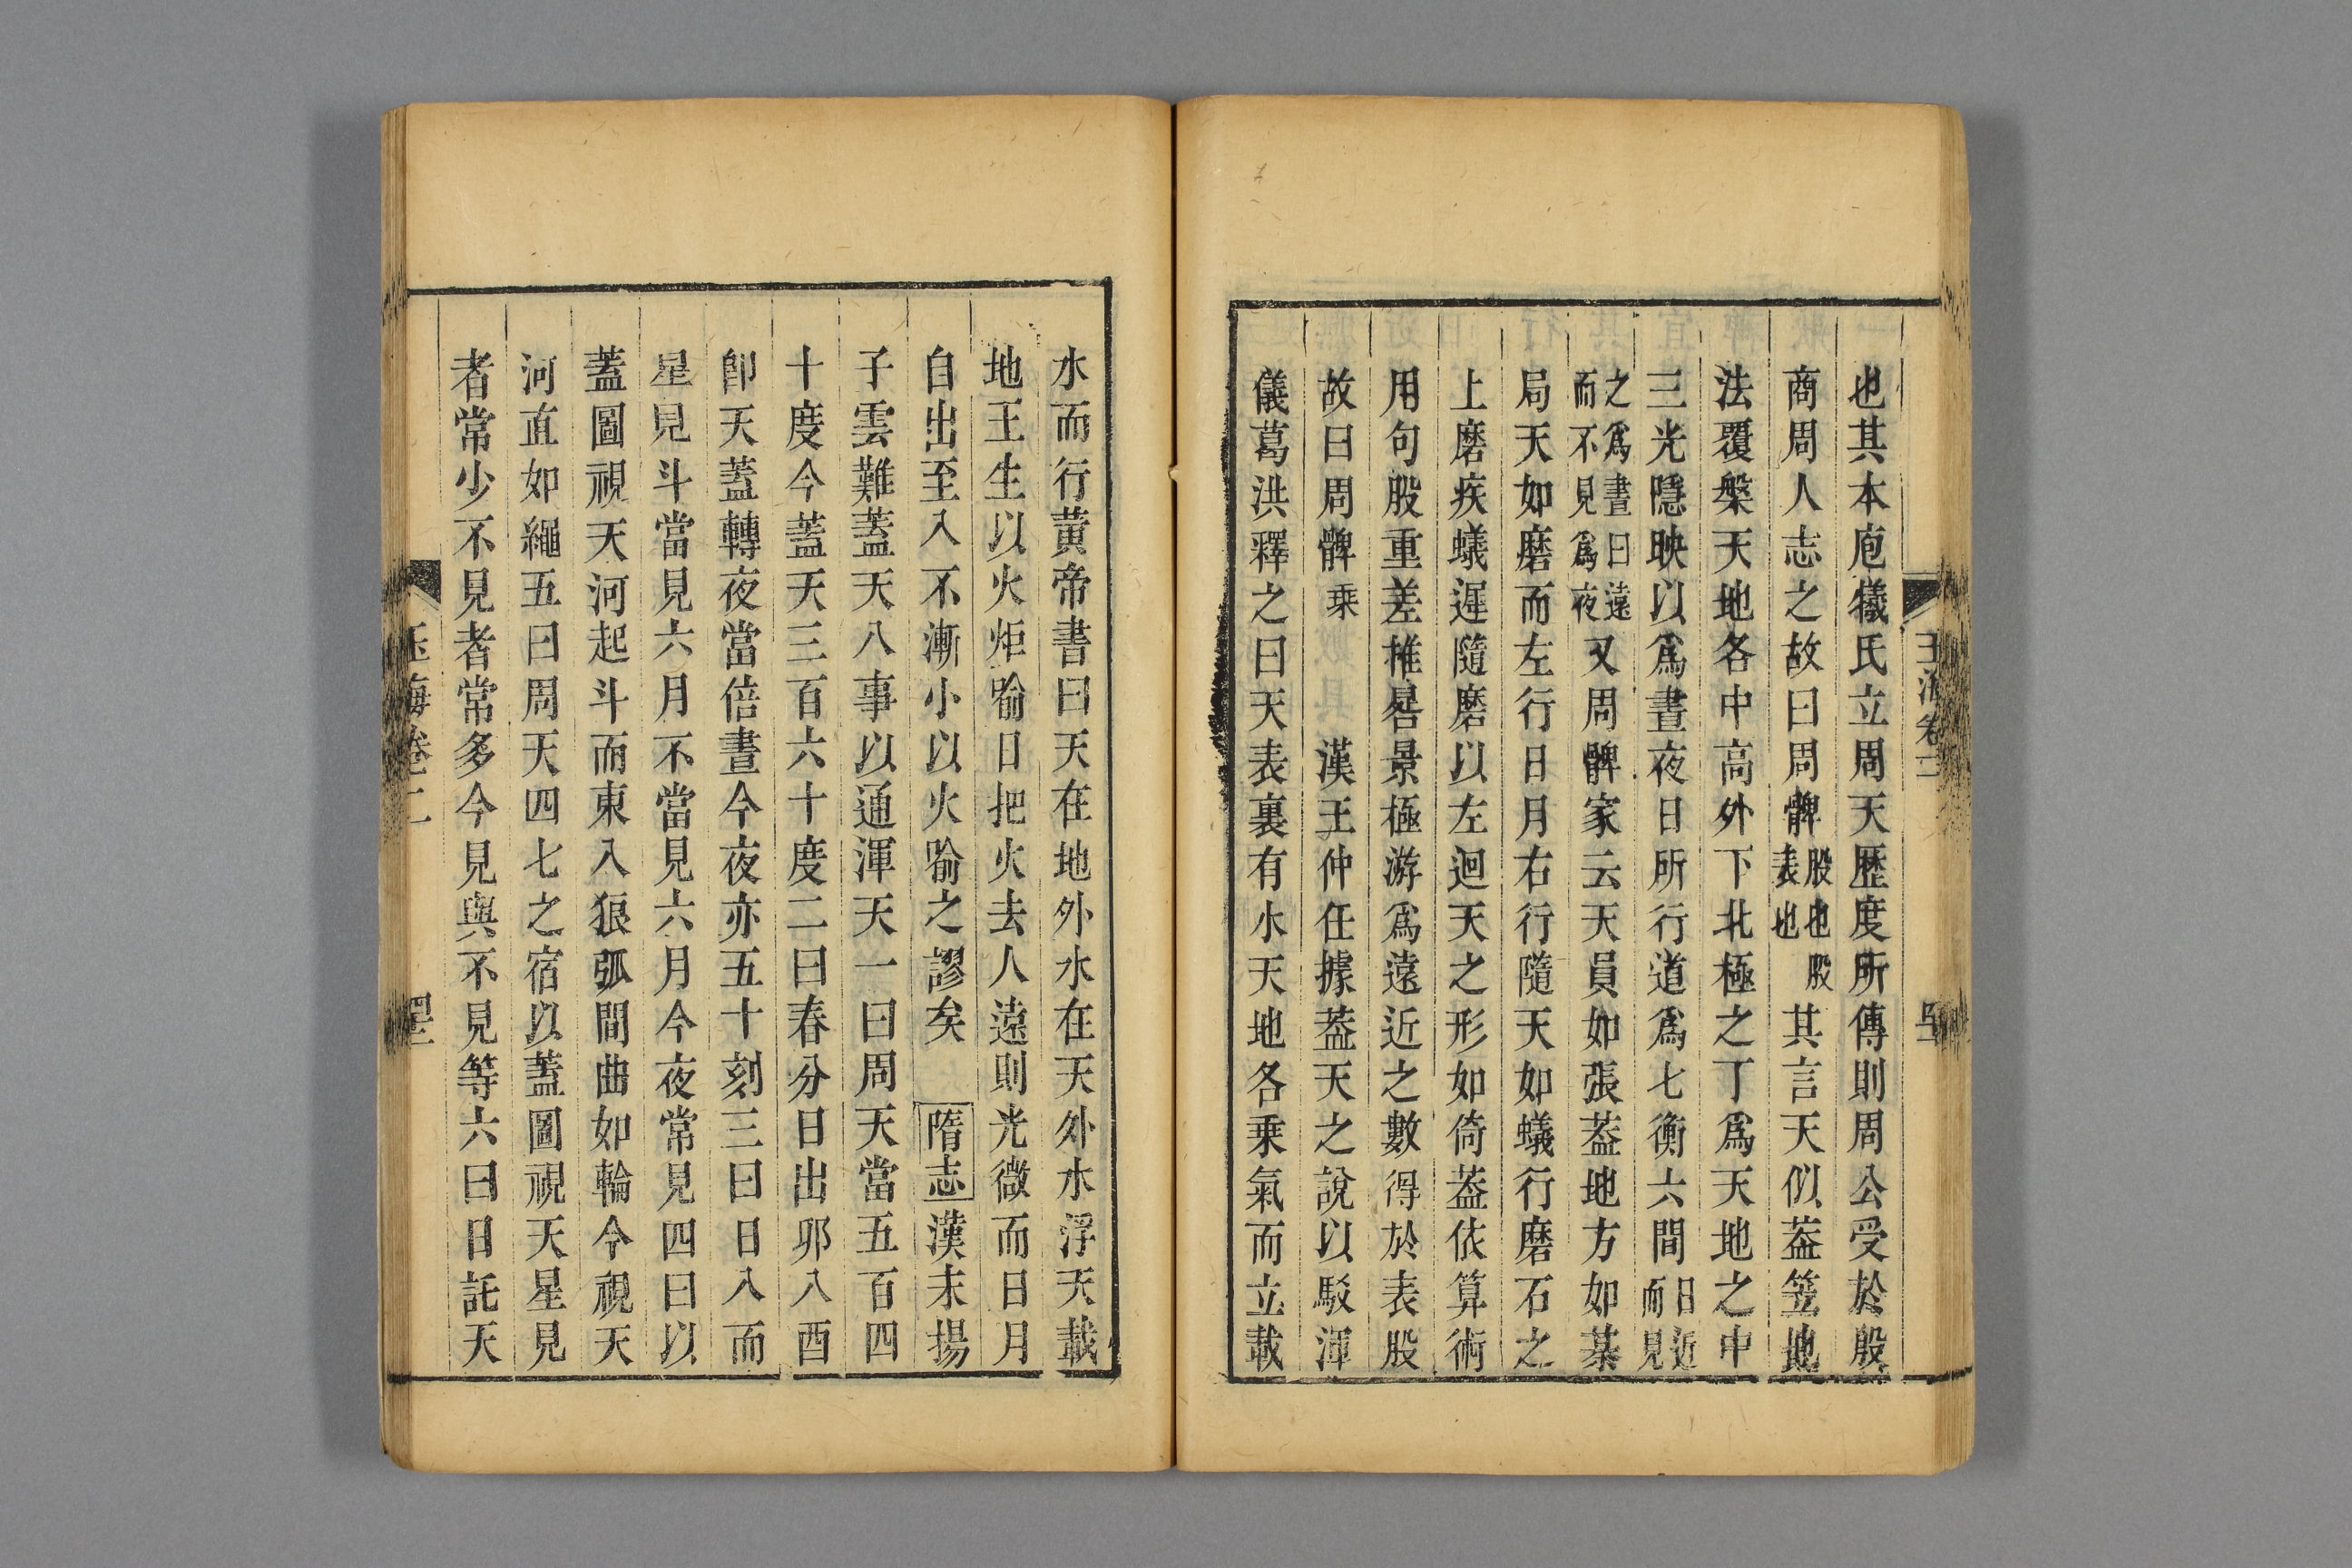 也其本庖犧氏立周天歷度所傳則周公受於殷
商周人志之故曰周髀股也股表也其言天似葢笠地
法覆槃天地各中高外下北極之下爲天地之中
三光隱映以爲晝夜日所行道爲七衡六間日近而見
之爲晝日遠而不見爲夜又周髀家云天員如張葢地方如棊
局天如磨而左行日月右行隨天如蟻行磨石之
上磨疾蟻遲隨磨以左迴天之形如倚葢依算術
用句股重差推晷景極游爲遠近之數得於表股
故曰周髀乘漢王仲任據葢天之說以駁渾
儀葛洪釋之曰天表裏有水天地各乘氣而立載
水而行黃帝書曰天在地外水在天外水浮天載
地王生以火炬喻日把火去人遠則光微而日月
自出至入不漸小以火喻之謬矣隋志漢末揚
子雲難蓋天八事以通渾天一曰周天當五百四
十度今蓋天三百六十度二曰春分日出卯入酉
卽天蓋轉夜當倍晝今夜亦五十刻三曰日入而
星見斗當見六月不當見六月今夜常見四曰以
蓋圖視天河起斗而東入狼弧間曲如輪今視天
河直如繩五曰周天四七之宿以蓋圖視天星見
者常少不見者常多今見與不見等六曰日託天
玉海卷二